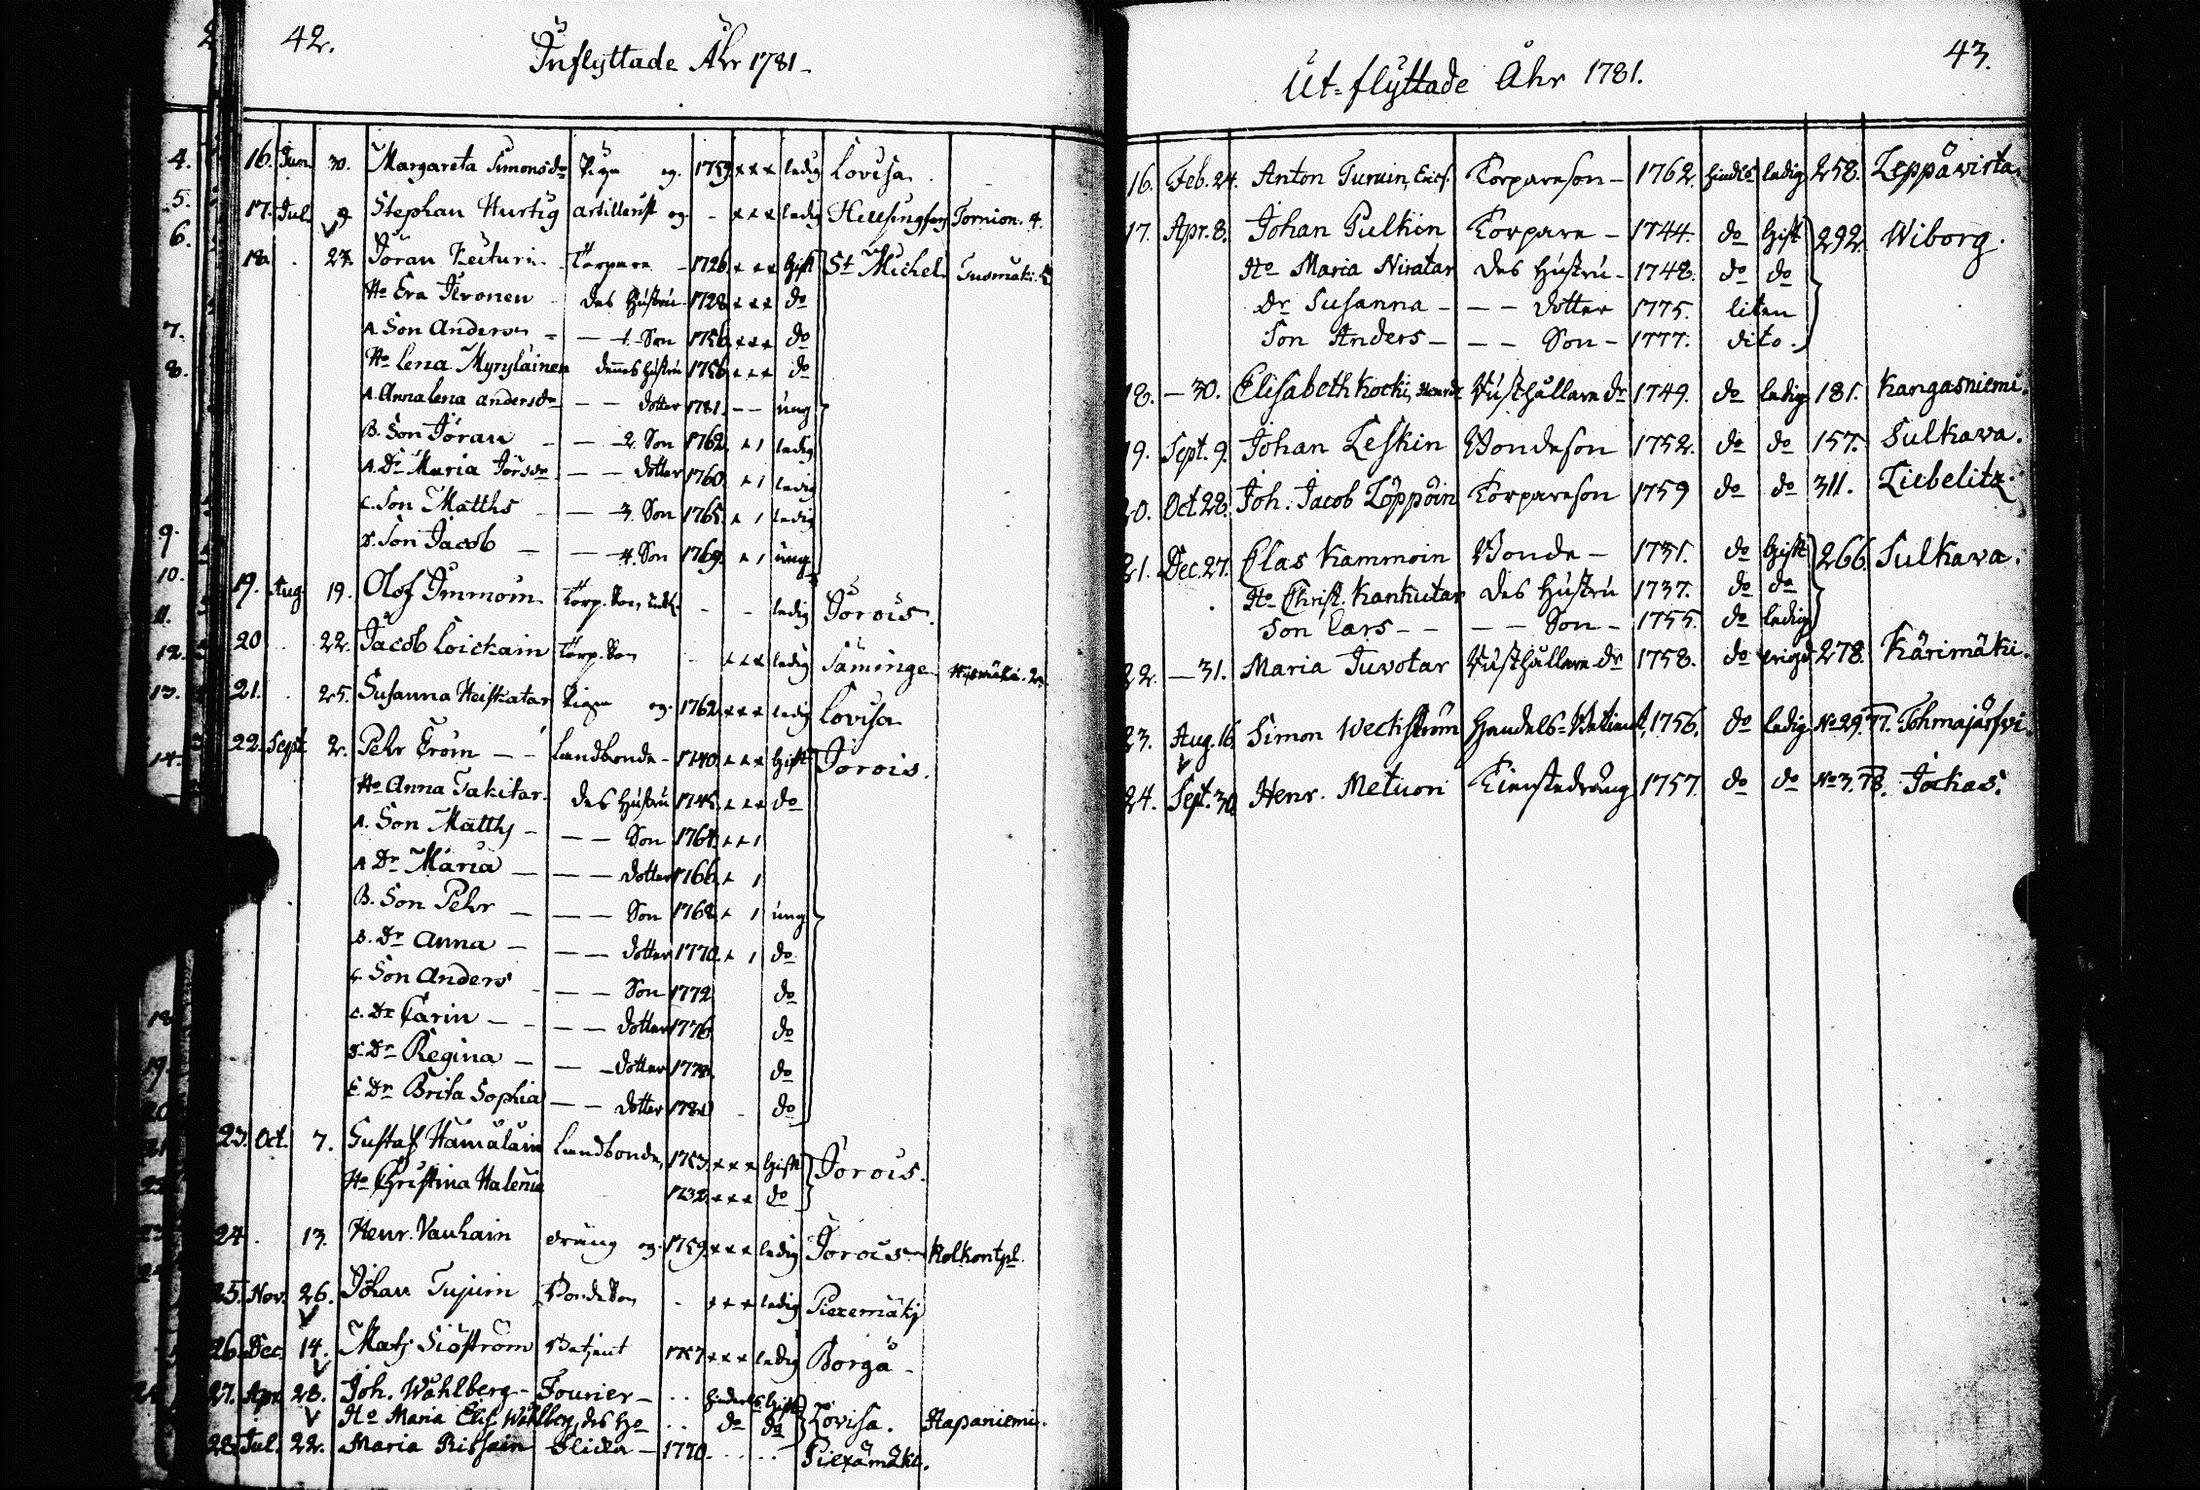 42.
Inflyttade Åhr 1781
16. Jun. 30. Margareta Simonsdr Piga og. 1759. x x x ledig Lovisa
17. Jul. 9. Stephan Hurtig artillerist og - x x x ledig Helsingfors Tornion. 4.
18. . 27. Jöran Keituri Torpare - 1726. x x x Gift St Michel
Ho Eva Ikonen des Hustru 1728. x x x do
A. Son Anders - - 1. Son 1756. x x x do
Ho Lena Myryläinen dennes Hustru 1756. x x x do
A. Annalena andersdr - - dotter 1781. - - ung
B. Son Jöran - - - 2. Son 1762. x 1 ledig
A. Dr Maria Jörsdr - - dotter 1760. x 1 ledig
C. Son Matths - - - 3. Son 1765. x 1 ledig
D. Son Jacob - - - 4. Son 1769. x 1 ung
19. Aug 19. Olof Immoin Torp. Son - - ledig Jorois.
20 . 22. Jacob Loickain Torp. Son - x x x ledig Säminge
21. . 25. Susanna Heiskatar Pigan og. 1762 x x x ledig Lovisa
22. Sept 2. Pehr Eroin - - Landbonde - 1740. x x x Gift Jorois.
Ho Anna Takitar des Hustru 1745. x x x do
A. Son Matths - - - Son 1764. x x 1
A Dr Maria - - - - dotter 1766. x 1
B. Son Pehr - - - Son 1768. x 1 ung
B. Dr Anna - - - dotter 1770. x 1 do
C. Son Anders - - - Son 1772 do
C. Dr Carin - - - - dotter 1776. do
D. Dr Regina - - - dotter 1778. do
E. Dr Brita Sophia - - dotter 1781 - do
23. Oct. 7. Gustaf Hämäläin Landbonde, 1753. x x x Gift Jorois.
Ho Christina Halenia 1732. x x x do
24 . 13. Henr. Vauhain dräng og. 1759. x x x ledig Jorois Kolkontpl.
25. Nov. 26. Johan Tujuin BondeSon - x x x ledig Piexemäkj
26. Dec. 14. Mats Siöström Betjent 1757 x x x ledig Borgå -
27. Apr. 28. Joh. Wåhlberg - Fourier - . . hinderlös Gift Lovisa. Hapaniemi.
Ho Maria Elis. Wåhlberg, des Ho . . do do
28. Jul. 22. Maria Rissain 1770. . . . . . Piexämäki.
43.
Ut-flyttade Åhr 1781.
16. Feb. 24. Anton Turuin, Erics. Torpareson - 1762. hindlö ledig 258. Leppävirta.
17. Apr. 8. Johan Pulkin Torpare - 1744. do Gift 292. Wiborg.
Ho Maria Niratar des Hustru - 1748. do do
Dr Susanna - - - dotter 1775. liten
Son Anders - - - Son - 1777. dito.
18. - 30. Elisabeth Kocki, Henrdr Rusthållare dr 1749. do ledig 181. Kangasniemi.
19. Sept. 9. Johan Leskin Bondeson 1752. do do 157. Sulkava.
20. Oct. 28. Joh. Jacob Löppöin Torpareson 1759 do do 311. Liebelitz.
21. Dec. 27. Clas Kammoin Bonde - 1731. do Gift 266. Sulkava.
Ho Christ. Kankutar des Hustru 1737. do do
Son Lars - - - - Son - 1755. do ledig
22. - 31. Maria Juvotar Rusthållare dr 1758. do 278. Kärimäki.
23. Aug. 16. Simon Weckström Handels-Betient, 1756. do ledig No 29. 77. Tohmajärfvi.
24. Sept. 30 Henr. Metuon Tienstedräng 1757. do do No 3. 78. Jockas.